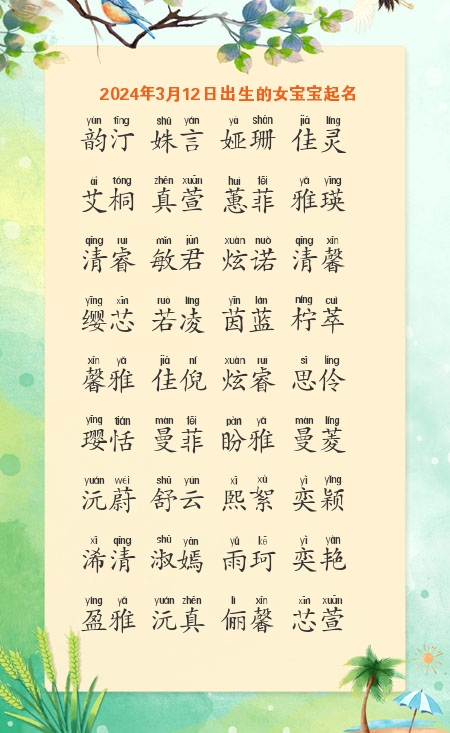 2024年3月12日出生的女宝宝起名
yùn tīng shū yán yà shān jiā líng
韵汀 姝言 娅珊 佳灵
ài tóng zhēn xuān huì fēi yǎ yīng
艾桐 真萱 蕙菲 雅瑛
qīng ruì mǐn jūn xuàn nuò qīng xīn
清睿 敏君 炫诺 清馨
yīng xīn ruò líng yīn lán níng cuì
缨芯 若凌 茵蓝 柠萃
xīn yǎ jiā ní xuàn ruì sī líng
馨雅 佳倪 炫睿 思伶
yīng tián màn fēi pàn yǎ màn líng
璎恬 曼菲 盼雅 曼菱
yuán wèi shū yún xī xù yì yǐng
沅蔚 舒云 熙絮 奕颖
xī qīng shū yān yǔ kē yì yàn
浠清 淑嫣 雨珂 奕艳
yíng yǎ yuán zhēn lì xīn xīn xuān
盈雅 沅真 俪馨 芯萱